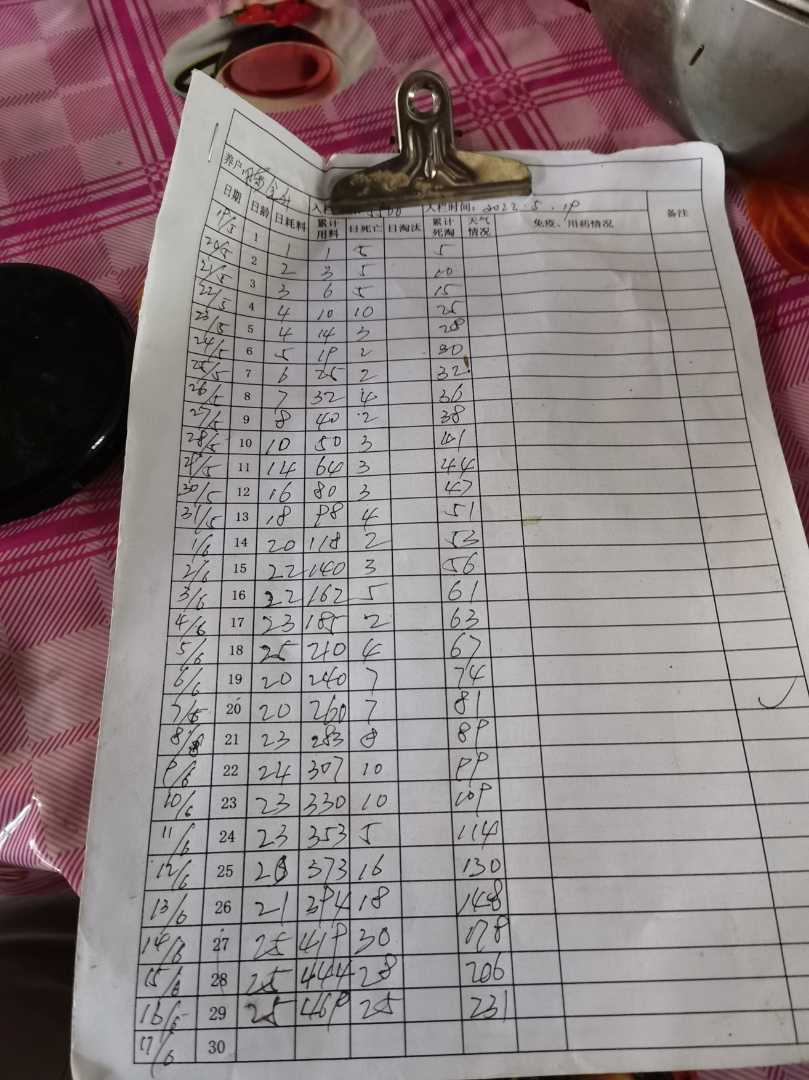 养户
入栏时间：2022.5.19
日期 日龄 日耗料 累计用料 日死亡 日淘汰 累计死淘 天气情况 免疫、用药情况 备注
19/5 1 1 1 5 5
20/5 2 2 3 5 10
21/5 3 3 6 5 15
22/5 4 4 10 10 25
23/5 5 4 14 3 28
24/5 6 5 19 2 30
25/5 7 6 25 2 32
26/5 8 7 32 4 36
27/5 9 8 40 2 38
28/5 10 10 50 3 41
29/5 11 14 64 3 44
30/5 12 16 80 3 47
31/5 13 18 98 4 51
1/6 14 20 118 2 53
2/6 15 22 140 3 56
3/6 16 22 162 5 61
4/6 17 23 185 2 63
5/6 18 25 210 4 67
6/6 19 20 240 7 74
7/6 20 20 260 7 81
8/6 21 23 283 8 89
9/6 22 24 307 10 99
10/6 23 23 330 10 109
11/6 24 23 353 5 114
12/6 25 373 16 130
13/6 26 21 394 18 148
14/6 27 25 419 30 178
15/6 28 25 444 28 206
16/6 29 25 469 25 231
17/6 30